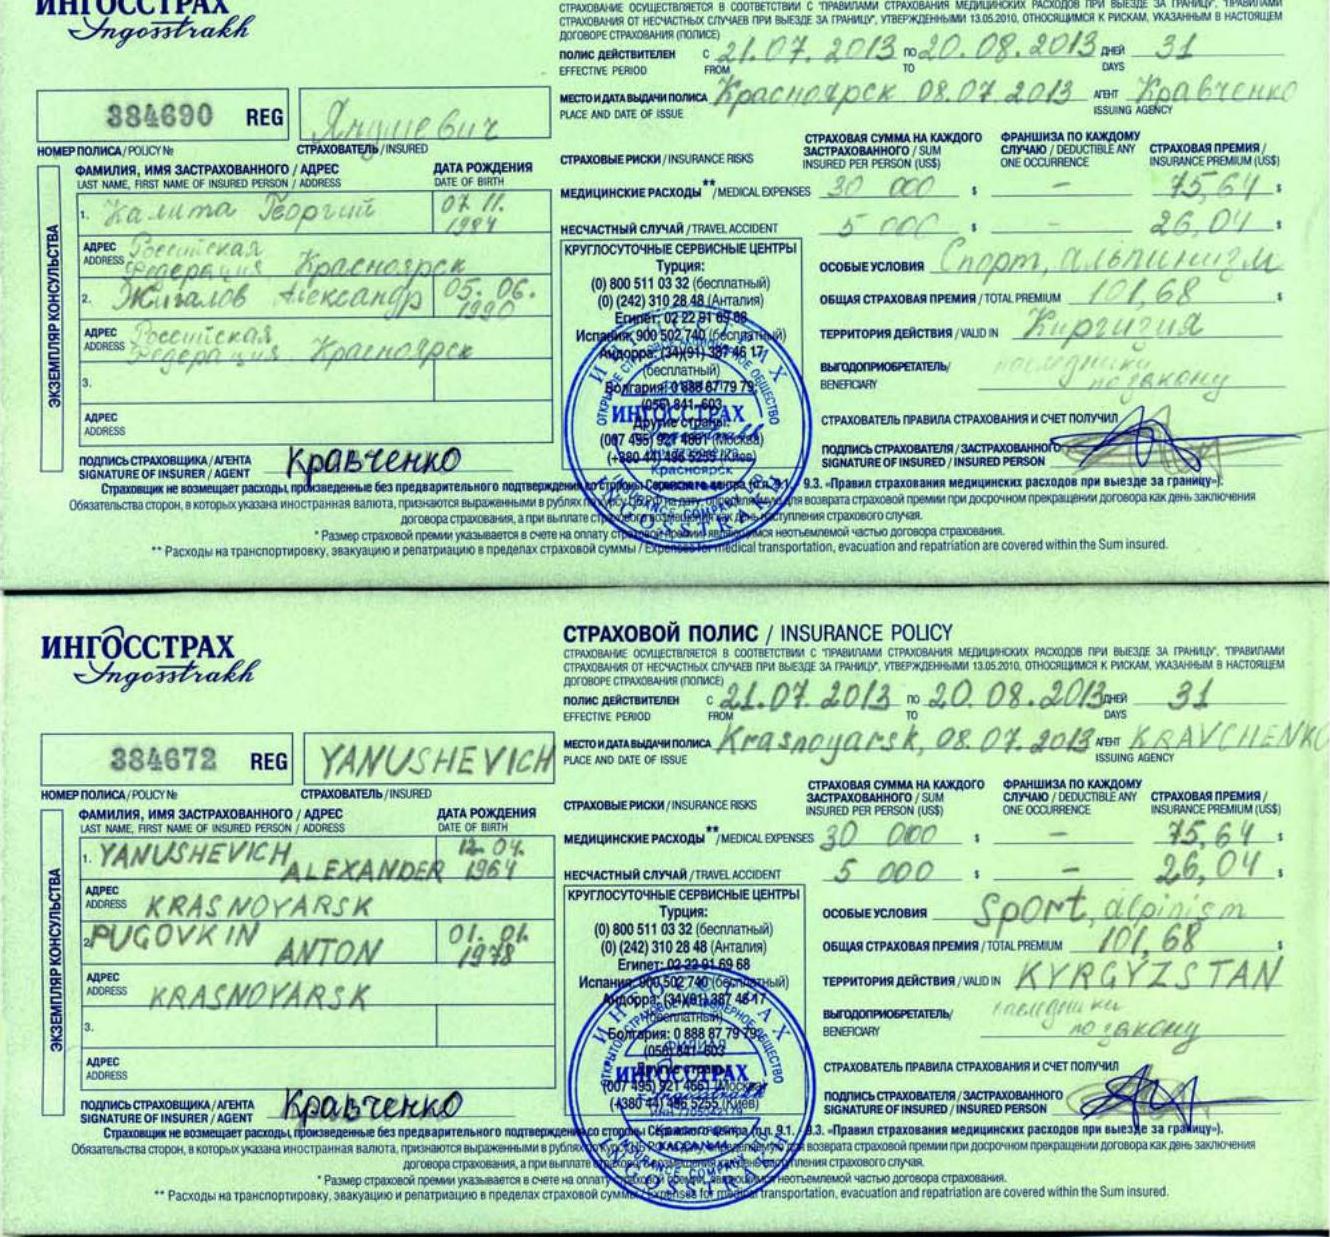 ИНГОССТРАХ
Ingosstrakh
СТРАХОВАНИЕ ОСУЩЕСТВЛЯЕТСЯ В СООТВЕТСТВИИ С "ПРАВИЛАМИ СТРАХОВАНИЯ МЕДИЦИНСКИХ РАСХОДОВ ПРИ ВЫЕЗДЕ ЗА ГРАНИЦУ", "ПРАВИЛАМИ
СТРАХОВАНИЯ ОТ НЕСЧАСТНЫХ СЛУЧАЕВ ПРИ ВЫЕЗДЕ ЗА ГРАНИЦУ", УТВЕРЖДЕННЫМИ 13.05.2010, ОТНОСЯЩИМСЯ К РИСКАМ, УКАЗАННЫМ В НАСТОЯЩЕМ
ДОГОВОРЕ СТРАХОВАНИЯ (ПОЛИСЕ)
ПОЛИС ДЕЙСТВИТЕЛЕН С 21.07.2013 ПО 20.08.2013 ДНЕЙ 31
EFFECTIVE PERIOD FROM TO DAYS
МЕСТО И ДАТА ВЫДАЧИ ПОЛИСА Красноярск 08.07.2013 АГЕНТ Кравченко
PLACE AND DATE OF ISSUE ISSUING AGENCY
384690 REG Янушевич
НОМЕР ПОЛИСА / POLICY № СТРАХОВАТЕЛЬ / INSURED
ФАМИЛИЯ, ИМЯ ЗАСТРАХОВАННОГО / АДРЕС ДАТА РОЖДЕНИЯ
LAST NAME, FIRST NAME OF INSURED PERSON / ADDRESS DATE OF BIRTH
ЭКЗЕМПЛЯР КОНСУЛЬСТВА
1. Калита Георгий 07.11. 1984
АДРЕС ADDRESS Российская Федерация Красноярск
2. Жигалов Александр 05.06. 1990
АДРЕС ADDRESS Российская Федерация Красноярск
3.
АДРЕС
ADDRESS
СТРАХОВЫЕ РИСКИ / INSURANCE RISKS
СТРАХОВАЯ СУММА НА КАЖДОГО ЗАСТРАХОВАННОГО / SUM INSURED PER PERSON (US$)
ФРАНШИЗА ПО КАЖДОМУ СЛУЧАЮ / DEDUCTIBLE ANY ONE OCCURRENCE
СТРАХОВАЯ ПРЕМИЯ / INSURANCE PREMIUM (US$)
МЕДИЦИНСКИЕ РАСХОДЫ** / MEDICAL EXPENSES 30 000 $ – 75,64 $
НЕСЧАСТНЫЙ СЛУЧАЙ / TRAVEL ACCIDENT 5 000 $ – 26,04 $
КРУГЛОСУТОЧНЫЕ СЕРВИСНЫЕ ЦЕНТРЫ
Турция:
(0) 800 511 03 32 (бесплатный)
(0) (242) 310 28 48 (Анталия)
Египет: 02 22 91 69 68
Испания: 900 502 740 (бесплатный)
Андорра: (34)(91) 387 46 17
(бесплатный)
Болгария: 0 888 87 79 79,
(056) 841-603
Другие страны:
(007 495) 921 4661 (Москва)
(+380 44) 496 5255 (Киев)
ОСОБЫЕ УСЛОВИЯ Спорт, альпинизм
ОБЩАЯ СТРАХОВАЯ ПРЕМИЯ / TOTAL PREMIUM 101,68 $
ТЕРРИТОРИЯ ДЕЙСТВИЯ / VALID IN Киргизия
ВЫГОДОПРИОБРЕТАТЕЛЬ/ BENEFICIARY наследники по закону
СТРАХОВАТЕЛЬ ПРАВИЛА СТРАХОВАНИЯ И СЧЕТ ПОЛУЧИЛ
ПОДПИСЬ СТРАХОВАТЕЛЯ / ЗАСТРАХОВАННОГО
SIGNATURE OF INSURED / INSURED PERSON
ПОДПИСЬ СТРАХОВЩИКА / АГЕНТА Кравченко
SIGNATURE OF INSURER / AGENT
ИНГОССТРАХ
Красноярск
Страховщик не возмещает расходы, произведенные без предварительного подтверждения со стороны Сервисного центра (п.п. 9.1. - 9.3. «Правил страхования медицинских расходов при выезде за границу»).
Обязательства сторон, в которых указана иностранная валюта, признаются выраженными в рублях по курсу ЦБ РФ на дату, определяемую для возврата страховой премии при досрочном прекращении договора как день заключения
договора страхования, а при выплате страхового возмещения как день наступления страхового случая.
* Размер страховой премии указывается в счете на оплату страховой премии, являющимся неотъемлемой частью договора страхования.
** Расходы на транспортировку, эвакуацию и репатриацию в пределах страховой суммы / Expenses for medical transportation, evacuation and repatriation are covered within the Sum insured.
ИНГОССТРАХ
Ingosstrakh
СТРАХОВОЙ ПОЛИС / INSURANCE POLICY
СТРАХОВАНИЕ ОСУЩЕСТВЛЯЕТСЯ В СООТВЕТСТВИИ С "ПРАВИЛАМИ СТРАХОВАНИЯ МЕДИЦИНСКИХ РАСХОДОВ ПРИ ВЫЕЗДЕ ЗА ГРАНИЦУ", "ПРАВИЛАМИ
СТРАХОВАНИЯ ОТ НЕСЧАСТНЫХ СЛУЧАЕВ ПРИ ВЫЕЗДЕ ЗА ГРАНИЦУ", УТВЕРЖДЕННЫМИ 13.05.2010, ОТНОСЯЩИМСЯ К РИСКАМ, УКАЗАННЫМ В НАСТОЯЩЕМ
ДОГОВОРЕ СТРАХОВАНИЯ (ПОЛИСЕ)
ПОЛИС ДЕЙСТВИТЕЛЕН С 21.07.2013 ПО 20.08.2013 ДНЕЙ 31
EFFECTIVE PERIOD FROM TO DAYS
МЕСТО И ДАТА ВЫДАЧИ ПОЛИСА Krasnoyarsk, 08.07.2013 АГЕНТ KRAVCHENKO
PLACE AND DATE OF ISSUE ISSUING AGENCY
384672 REG YANUSHEVICH
НОМЕР ПОЛИСА / POLICY № СТРАХОВАТЕЛЬ / INSURED
ФАМИЛИЯ, ИМЯ ЗАСТРАХОВАННОГО / АДРЕС ДАТА РОЖДЕНИЯ
LAST NAME, FIRST NAME OF INSURED PERSON / ADDRESS DATE OF BIRTH
ЭКЗЕМПЛЯР КОНСУЛЬСТВА
1. YANUSHEVICH ALEXANDER 12.04. 1964
АДРЕС ADDRESS KRASNOYARSK
2. PUGOVKIN ANTON 01.01. 1978
АДРЕС ADDRESS KRASNOYARSK
3.
АДРЕС
ADDRESS
СТРАХОВЫЕ РИСКИ / INSURANCE RISKS
СТРАХОВАЯ СУММА НА КАЖДОГО ЗАСТРАХОВАННОГО / SUM INSURED PER PERSON (US$)
ФРАНШИЗА ПО КАЖДОМУ СЛУЧАЮ / DEDUCTIBLE ANY ONE OCCURRENCE
СТРАХОВАЯ ПРЕМИЯ / INSURANCE PREMIUM (US$)
МЕДИЦИНСКИЕ РАСХОДЫ** / MEDICAL EXPENSES 30 000 $ – 75,64 $
НЕСЧАСТНЫЙ СЛУЧАЙ / TRAVEL ACCIDENT 5 000 $ – 26,04 $
КРУГЛОСУТОЧНЫЕ СЕРВИСНЫЕ ЦЕНТРЫ
Турция:
(0) 800 511 03 32 (бесплатный)
(0) (242) 310 28 48 (Анталия)
Египет: 02 22 91 69 68
Испания: 900 502 740 (бесплатный)
Андорра: (34)(91) 387 46 17
(бесплатный)
Болгария: 0 888 87 79 79,
(056) 841-603
Другие страны:
(007 495) 921 4661 (Москва)
(+380 44) 496 5255 (Киев)
ОСОБЫЕ УСЛОВИЯ Sport, alpinism
ОБЩАЯ СТРАХОВАЯ ПРЕМИЯ / TOTAL PREMIUM 101,68 $
ТЕРРИТОРИЯ ДЕЙСТВИЯ / VALID IN KYRGYZSTAN
ВЫГОДОПРИОБРЕТАТЕЛЬ/ BENEFICIARY наследники по закону
СТРАХОВАТЕЛЬ ПРАВИЛА СТРАХОВАНИЯ И СЧЕТ ПОЛУЧИЛ
ПОДПИСЬ СТРАХОВАТЕЛЯ / ЗАСТРАХОВАННОГО
SIGNATURE OF INSURED / INSURED PERSON
ПОДПИСЬ СТРАХОВЩИКА / АГЕНТА Кравченко
SIGNATURE OF INSURER / AGENT
ИНГОССТРАХ
Страховщик не возмещает расходы, произведенные без предварительного подтверждения со стороны Сервисного центра (п.п. 9.1. - 9.3. «Правил страхования медицинских расходов при выезде за границу»).
Обязательства сторон, в которых указана иностранная валюта, признаются выраженными в рублях по курсу ЦБ РФ на дату, определяемую для возврата страховой премии при досрочном прекращении договора как день заключения
договора страхования, а при выплате страхового возмещения как день наступления страхового случая.
* Размер страховой премии указывается в счете на оплату страховой премии, являющимся неотъемлемой частью договора страхования.
** Расходы на транспортировку, эвакуацию и репатриацию в пределах страховой суммы / Expenses for medical transportation, evacuation and repatriation are covered within the Sum insured.